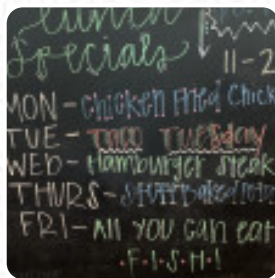 Lunch
Specials
11-2
MON - Chicken Fried Chick
TUE - Taco Tuesday
WED - Hamburger Steak
THURS - Stuff Baked
FRI - All you can eat
F·I·S·H·!